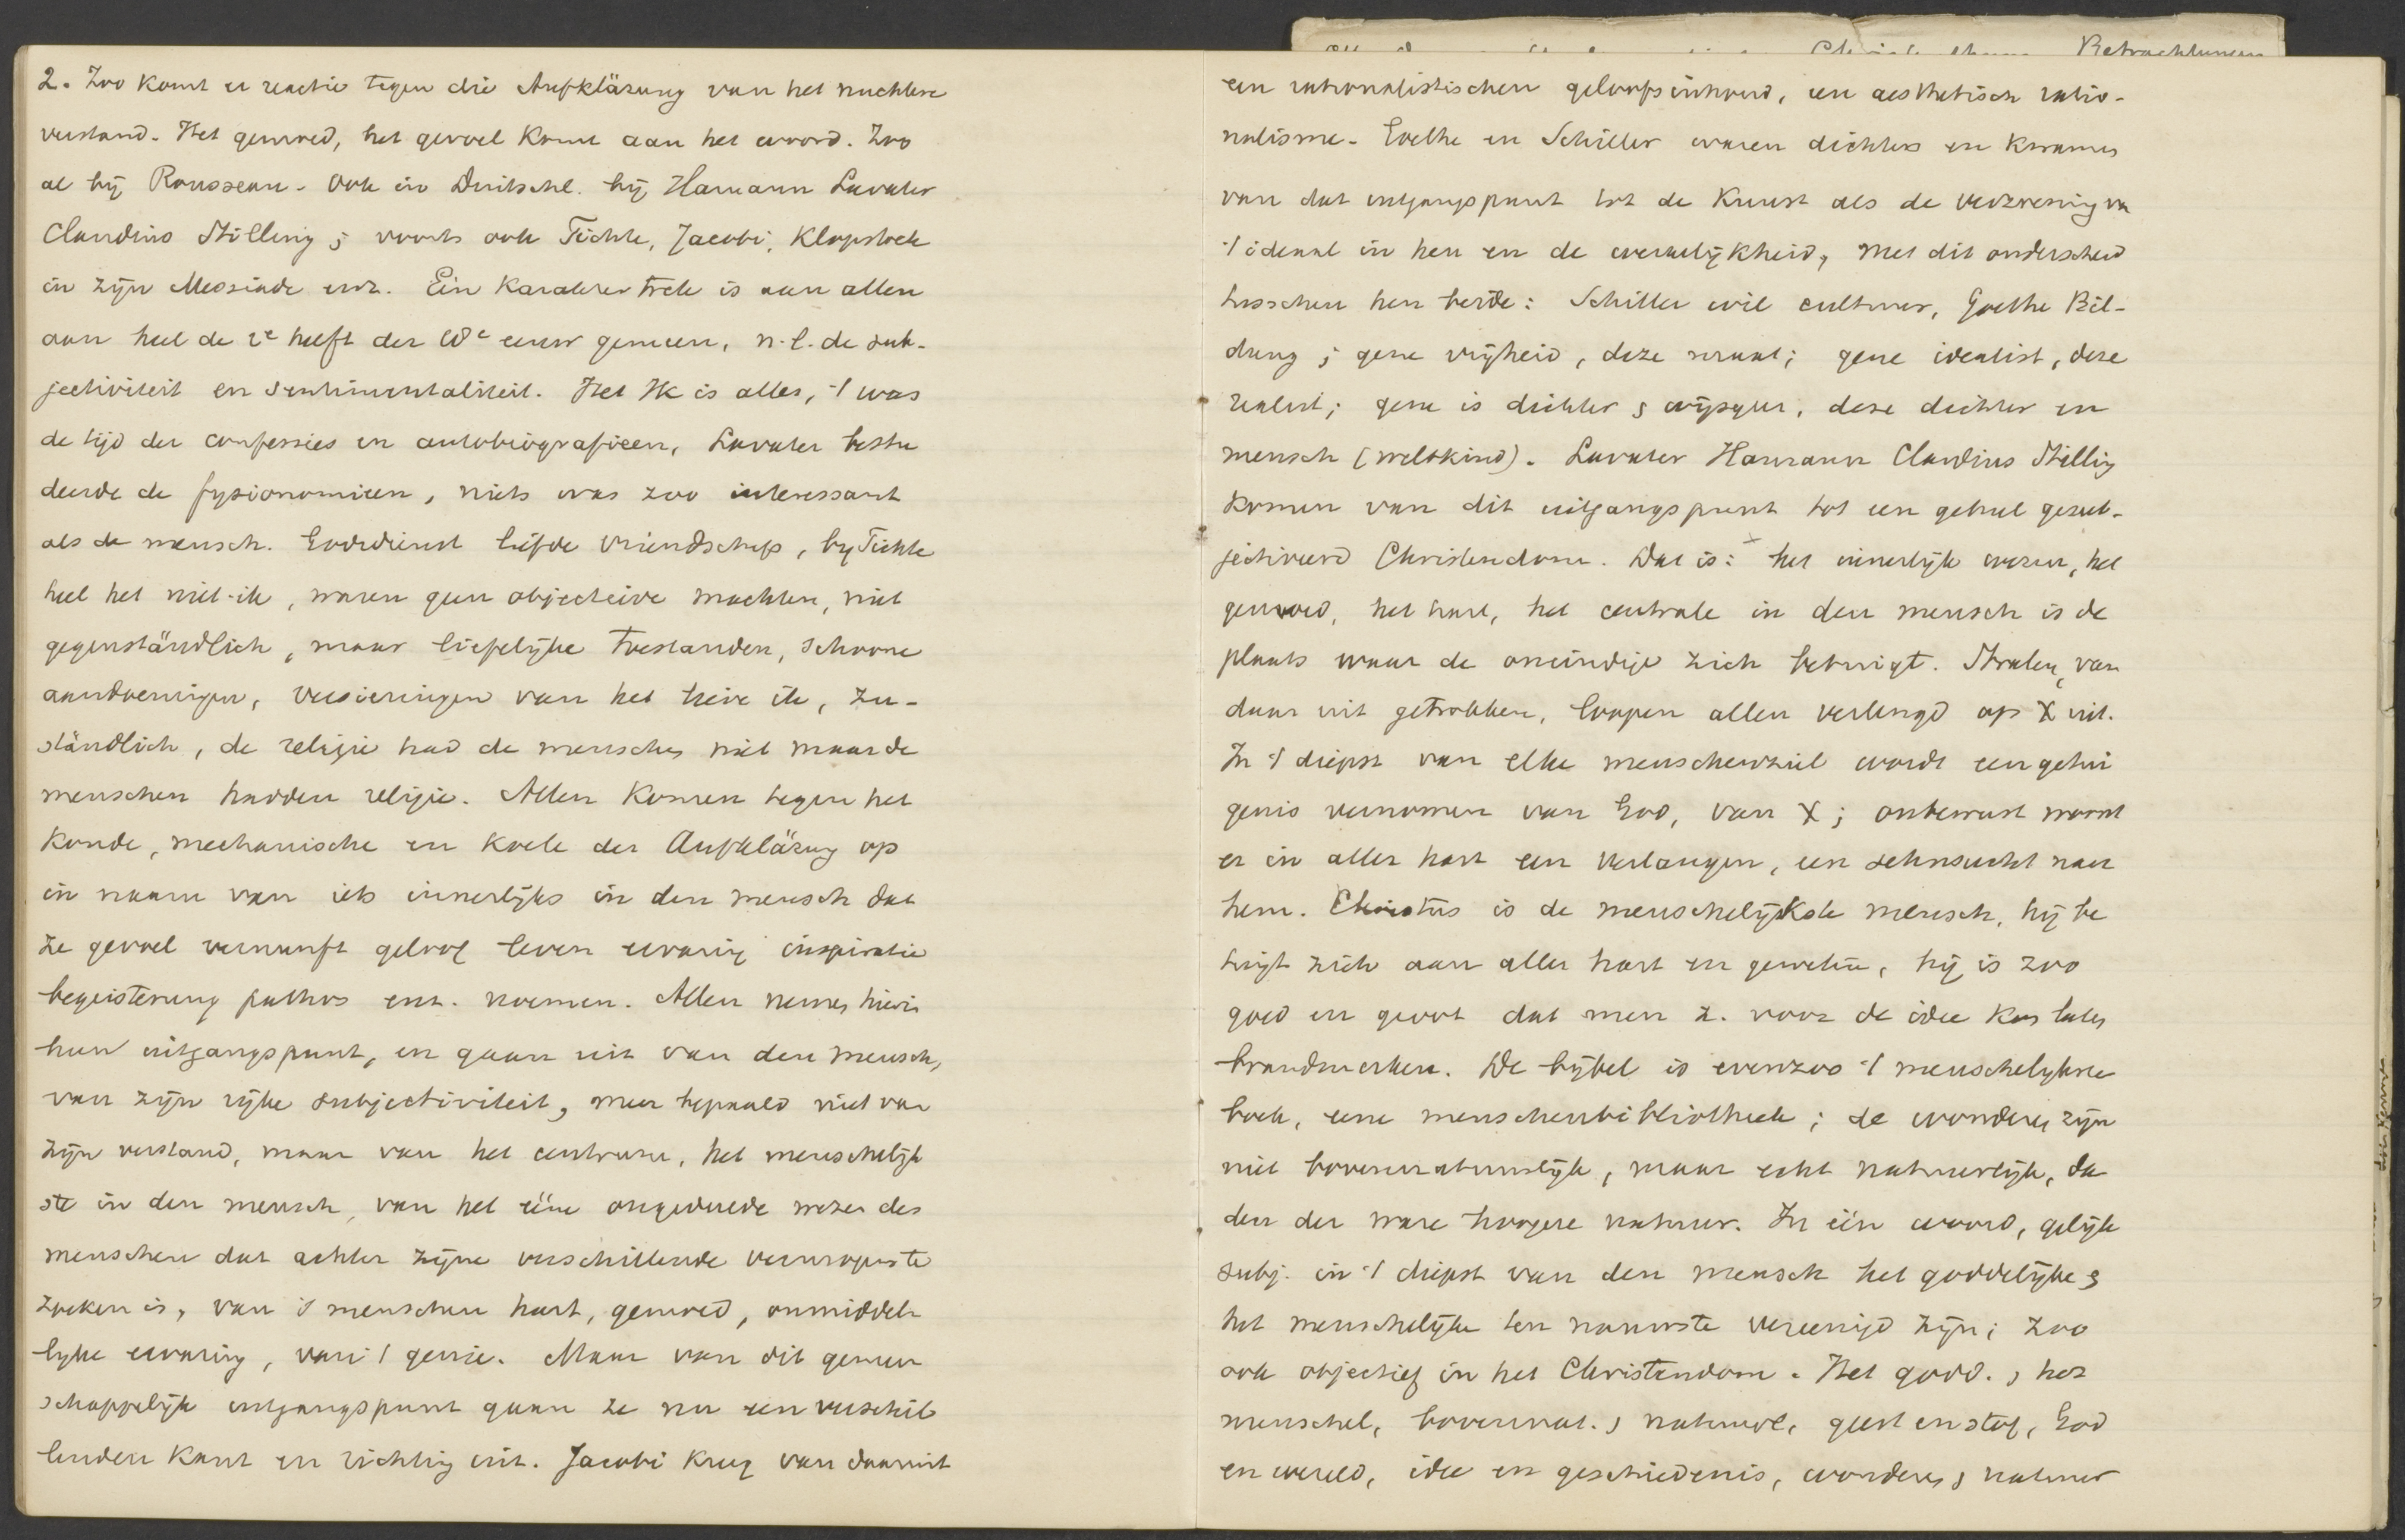 2. Zoo komt er reactie tegen die Aufklärung van het nuchtere
verstand. Het gemoed, het gevoel komt aan het woord. Zoo
al bij Rousseau. Ook in Duitschl. bij Hamann Lavater
Claudius Stilling; voorts ook Fichte, Jacobi, Klopstock
in zijn Messiade enz. Eén karaktertrek is aan allen
aan heel de 2e helft der 18e eeuw gemeen, n.l. de sub-
jectiviteit en sentimentaliteit. Het Ik is alles, 't was
de tijd der confessies en autobiografieen, Lavater bestu
deerde de fysionomieen, niets was zoo interessant
als de mensch. Godsdienst liefde vriendschap, bij Fichte
heel het niet-ik, waren geen objectieve machten, niet
gegenständlich, maar liefelijke toestanden, schoone
aandoeningen, versieringen van het lieve ik, zu-
ständlich, de religie had de menschen niet maar de
menschen hadden religie. Allen komen tegen het
koude, mechanische en koele der Aufklärung op
in naam van iets innerlijks in den mensch dat
ze gevoel vernunft geloof leven ervaring inspiratie
begeisterung pathos enz. noemen. Allen nemen hierin
hun uitgangspunt, en gaan uit van den mensch,
van zijn rijke subjectiviteit, meer bepaald niet van
zijn verstand, maar van het centrum, het menschelijk
ste in den mensch, van het ééne ongedeelde wezen des
menschen dat achter zijne verschillende vermogens te
zoeken is, van 's menschen hart, gemoed, onmiddel-
lijke ervaring, van 't genie. Maar van dit gemeen
schappelijk uitgangspunt gaan ze nu een verschil
lenden kant en richting uit. Jacobi kreeg van daaruit
een rationalistischen geloofsinhoud, een aesthetisch ratio-
nalisme. Goethe en Schiller waren dichters en kwamen
van dat uitgangspunt tot de kunst als de verzoening van
't ideaal in hen en de werkelijkheid, met dit onderscheid
tusschen hen beide: Schiller wil cultuur, Goethe Bil-
dung; gene vrijheid, deze ; gene idealist, deze
realist; gene is dichter & wijsgeer, deze dichter en
mensch (weltkind). Lavater Hamann Claudius Stilling
komen van dit uitgangspunt tot een geheel gesub-
jectiveerd Christendom. Dat is: het innerlijk wezen, het
gemoed, het hart, het centrale in den mensch is de
plaats waar de oneindige zich betuigt. Stralen, van
daar uit getrokken, loopen allen verlengd op X uit.
In 't diepst van elke menschenziel wordt een getui
genis vernomen van God, van X; onbewust woont
er in aller hart een verlangen, een sehnsucht naar
hem. Christus is de menschelijkste mensch, hij be
tuigt zich aan aller hart en geweten, hij is zoo
goed en groot dat men z. voor de idee kan laten
brandmerken. De bijbel is evenzoo 't menschelijkste
boek, eene menschenbibliotheek; de wonderen zijn
niet bovennatuurlijk, maar echt natuurlijk, da
den der ware hoogere natuur. In één woord, gelijk
subj. in 't diepst van den mensch het goddelijke &
het menschelijke ten nauwste vereenigd zijn; zoo
ook objectief in het Christendom. Het godd. & het
menschel, bovennat. & natuurl, geest en stof, God
en wereld, idee en geschiedenis, wonderen & natuur